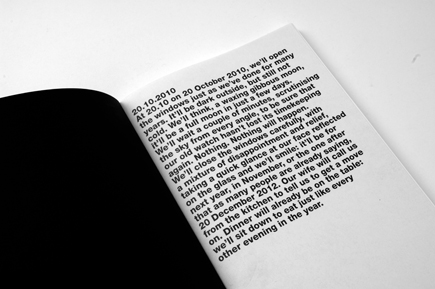 20.10.2010
At 20.10 on 20 October 2010, we'll open
the windows just as we've done for many
years. It'll be dark outside, but still not
cold. We'll think, a waxing gibbous moon,
it'll be a full moon in just a few days.
We'll wait a couple of minutes, scrutinising
the sky from every angle, to be sure that
our old watch hasn't lost its timekeeping
again. Nothing. Nothing will happen.
We'll close the windows carefully, with
a mixture of disappointment and relief,
taking a quick glance at our face reflected
on the glass and we'll smile: it'll be for
next year, in November, or the one after
that as many people are already saying,
20 December 2012. Our wife will call us
from the kitchen to tell us to get a move
on. Dinner will already be on the table:
we'll sit down to eat just like every
other evening in the year.